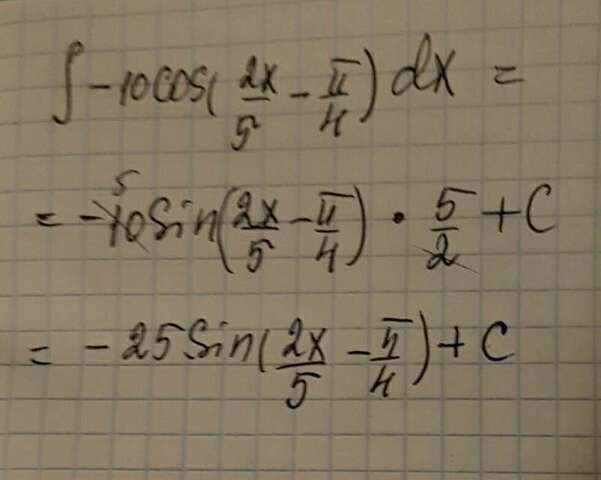 ∫ -10cos(2x/5 - π/4) dx =
= -10 5 sin(2x/5 - π/4) · 5/2 + C
= -25 sin(2x/5 - π/4) + C